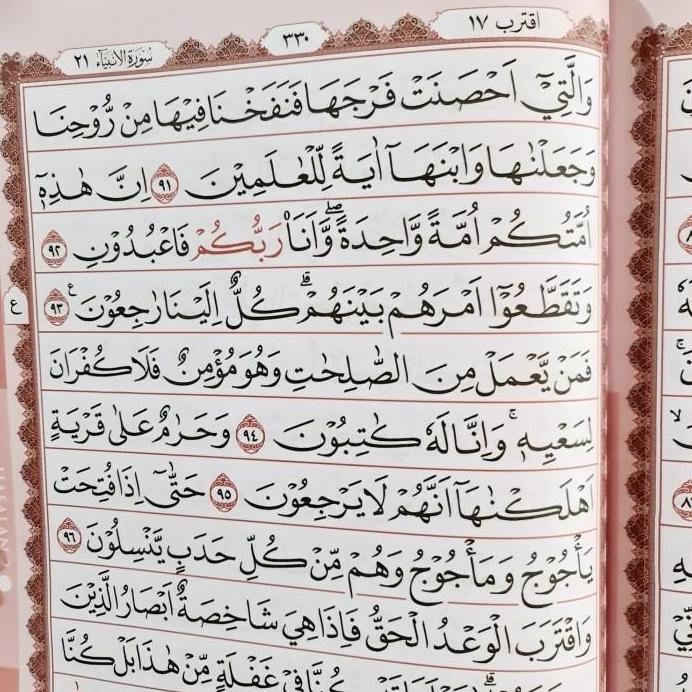 اقترب ١٧
٣٣٠
سُوْرَةُ الْاَنْبِيَاۤءِ ٢١
وَالَّتِيْٓ اَحْصَنَتْ فَرْجَهَا فَنَفَخْنَا فِيْهَا مِنْ رُّوْحِنَا
وَجَعَلْنٰهَا وَابْنَهَآ اٰيَةً لِّلْعٰلَمِيْنَ ٩١ اِنَّ هٰذِهٖٓ
اُمَّتُكُمْ اُمَّةً وَّاحِدَةًۖ وَّاَنَا۠ رَبُّكُمْ فَاعْبُدُوْنِ ٩٢
وَتَقَطَّعُوْٓا اَمْرَهُمْ بَيْنَهُمْۗ كُلٌّ اِلَيْنَا رٰجِعُوْنَ ࣖ ٩٣
ع
فَمَنْ يَّعْمَلْ مِنَ الصّٰلِحٰتِ وَهُوَ مُؤْمِنٌ فَلَا كُفْرَانَ
لِسَعْيِهٖۚ وَاِنَّا لَهٗ كٰتِبُوْنَ ٩٤ وَحَرٰمٌ عَلٰى قَرْيَةٍ
اَهْلَكْنٰهَآ اَنَّهُمْ لَا يَرْجِعُوْنَ ٩٥ حَتّٰىٓ اِذَا فُتِحَتْ
يَأْجُوْجُ وَمَأْجُوْجُ وَهُمْ مِّنْ كُلِّ حَدَبٍ يَّنْسِلُوْنَ ٩٦
وَاقْتَرَبَ الْوَعْدُ الْحَقُّ فَاِذَا هِيَ شَاخِصَةٌ اَبْصَارُ الَّذِيْنَ
كُنَّا فِيْ غَفْلَةٍ مِّنْ هٰذَا بَلْ كُنَّا